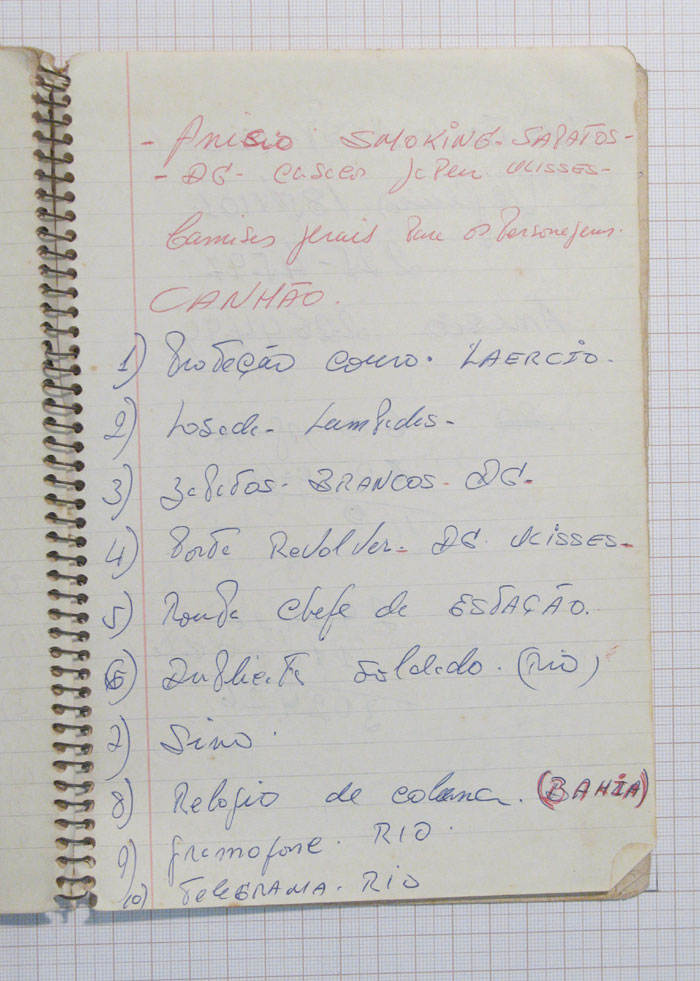 - Anisio SMOKING - SAPATOS -
- DG - casaco ULISSES -
Camisas gerais para os Personagens.
CANHÃO.
1) Proteção couro. LAERCIO.
2) Lampedas -
3) Sapatos - BRANCOS - DG -
4) Porta Revolver - DG. ULISSES -
5) Roupa Chefe de ESTAÇÃO.
6) Duplicata Soldado. (Rio)
7) Sino.
8) Relogio de coluna. (BAHIA)
9) gramofone. RIO.
10) TELEGRAMA. RIO